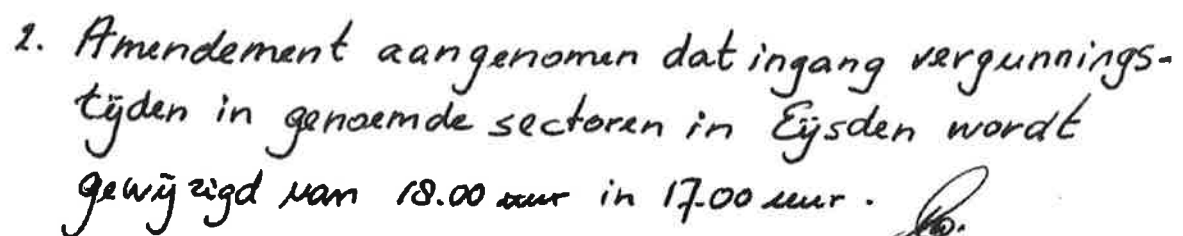 2. Amendement aangenomen dat ingang vergunnings-
tijden in genoemde sectoren in Eijsden wordt
gewijzigd van 18.00 uur in 17.00 uur.